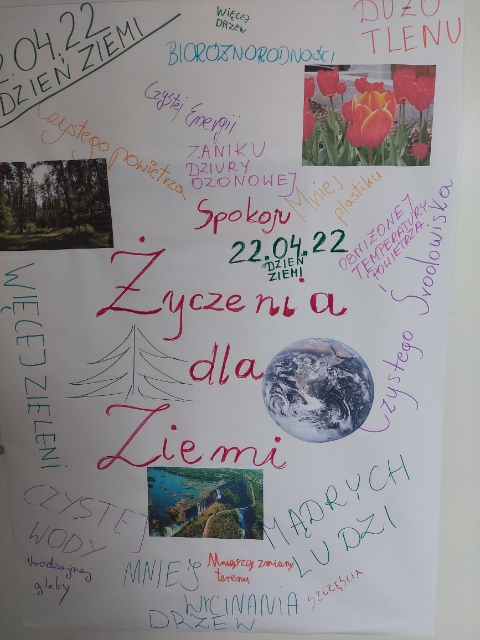 2.04.22
DZIEŃ ZIEMI
WIĘCEJ
DRZEW
DUŻO
TLENU
BIORÓŻNORODNOŚCI
Czystej Energii
Czystego powietrza
ZANIKU
DZIURY
OZONOWEJ
Mniej
plastiku
Spokoju
22.04.22
DZIEŃ
ZIEMI
OBNIŻONEJ
TEMPERATURY
POWIETRZA!
Czystego Środowiska
Życzenia
dla
Ziemi
WIĘCEJ ZIELENI
CZYSTEJ
WODY
Urodzajnej
gleby
MĄDRYCH
LUDZI
Mniejszej zmiany
terenu
MNIEJ
WYCINANIA
DRZEW
SZCZĘŚCIA